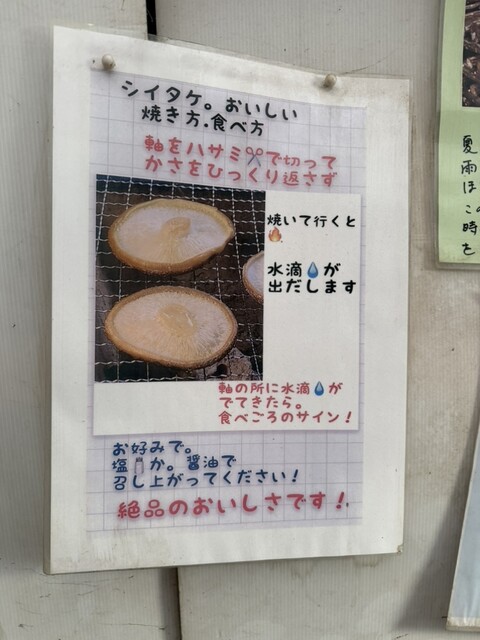 シイタケ。おいしい
焼き方.食べ方
軸をハサミ✂で切って
かさをひっくり返さず
焼いて行くと
🔥
水滴💧が
出だします
軸の所に水滴💧が
でてきたら。
食べごろのサイン!
お好みで。
塩🧂か。醤油で
召し上がってください!
絶品のおいしさです!.
夏
雨
ほ
この
時
を